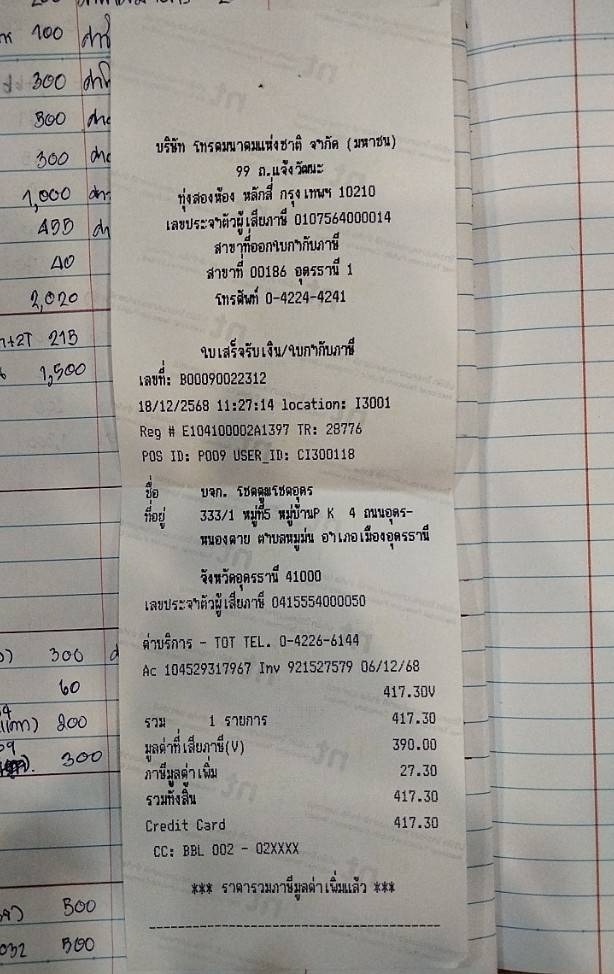 100
300
300
300
1,000
455
40
2,020
215
1,500
บริษัท โทรคมนาคมแห่งชาติ จำกัด (มหาชน)
99 ถ.แจ้งวัฒนะ
ทุ่งสองห้อง หลักสี่ กรุงเทพฯ 10210
เลขประจำตัวผู้เสียภาษี 0107564000014
สาขาที่ออกใบกำกับภาษี
สาขาที่ 00186 อุดรธานี 1
โทรศัพท์ 0-4224-4241
ใบเสร็จรับเงิน/ใบกำกับภาษี
เลขที่: B00090022312
18/12/2568 11:27:14 location: I3001
Reg # E104100002A1397 TR: 28776
POS ID: P009 USER_ID: CI300118
ชื่อ บจก. โชคคูณโชคอุดร
ที่อยู่ 333/1 หมู่ที่5 หมู่บ้านP K 4 ถนนอุดร-
หนองคาย ตำบลหมูม่น อำเภอเมืองอุดรธานี
จังหวัดอุดรธานี 41000
เลขประจำตัวผู้เสียภาษี 0415554000050
ค่าบริการ - TOT TEL. 0-4226-6144
Ac 104529317967 Inv 921527579 06/12/68
417.30V
รวม 1 รายการ 417.30
มูลค่าที่เสียภาษี(V) 390.00
ภาษีมูลค่าเพิ่ม 27.30
รวมทั้งสิ้น 417.30
Credit Card 417.30
CC: BBL 002 - 02XXXX
*** ราคารวมภาษีมูลค่าเพิ่มแล้ว ***
300
60
200
300
500
500